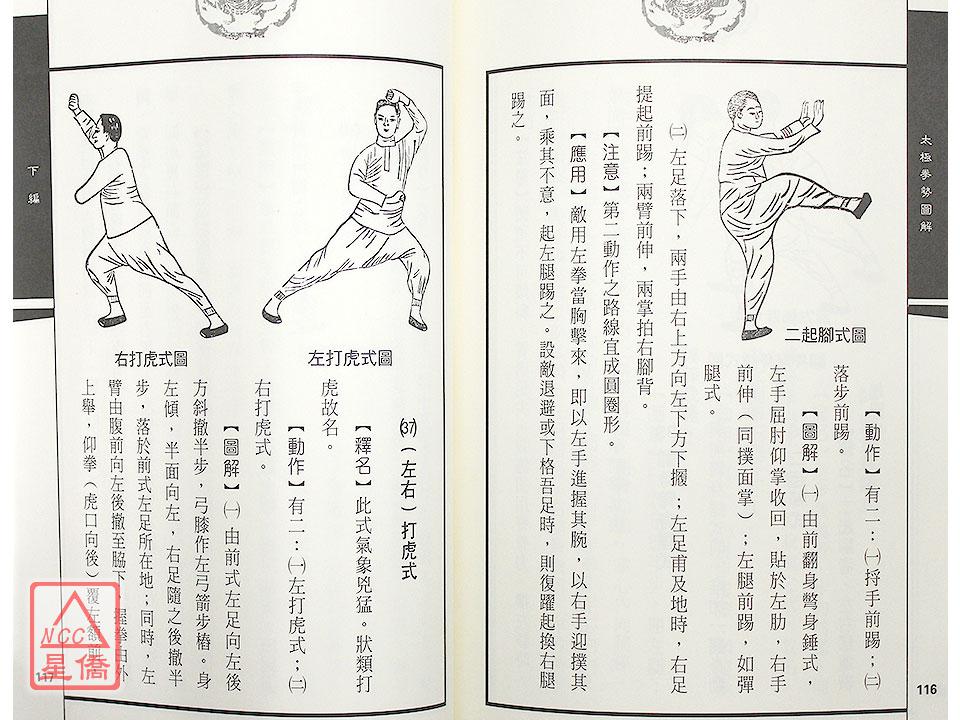 太極拳勢圖解
二起腳式圖
【動作】有二：㈠捋手前踢；㈡
落步前踢。
【圖解】㈠由前翻身彆身錘式，
左手屈肘仰掌收回，貼於左肋，右手
前伸（同撲面掌）；左腿前踢，如彈
腿式。
㈡左足落下，兩手由右上方向左下方下攦；左足甫及地時，右足
提起前踢；兩臂前伸，兩掌拍右腳背。
【注意】第二動作之路線宜成圓圈形。
【應用】敵用左拳當胸擊來，即以左手進握其腕，以右手迎撲其
面，乘其不意，起左腿踢之。設敵退避或下格吾足時，則復躍起換右腿
踢之。
116
左打虎式圖
右打虎式圖
(37)（左右）打虎式
【釋名】此式氣象兇猛。狀類打
虎故名。
【動作】有二：㈠左打虎式；㈡
右打虎式。
【圖解】㈠由前式左足向左後
方斜撤半步，弓膝作左弓箭步樁。身
左傾，半面向左，右足隨之後撤半
步，落於前式左足所在地；同時，左
臂由腹前向左後撤至脇下，握拳由外
上舉，仰拳（虎口向後）覆左額前
下編
117
NCC
星僑